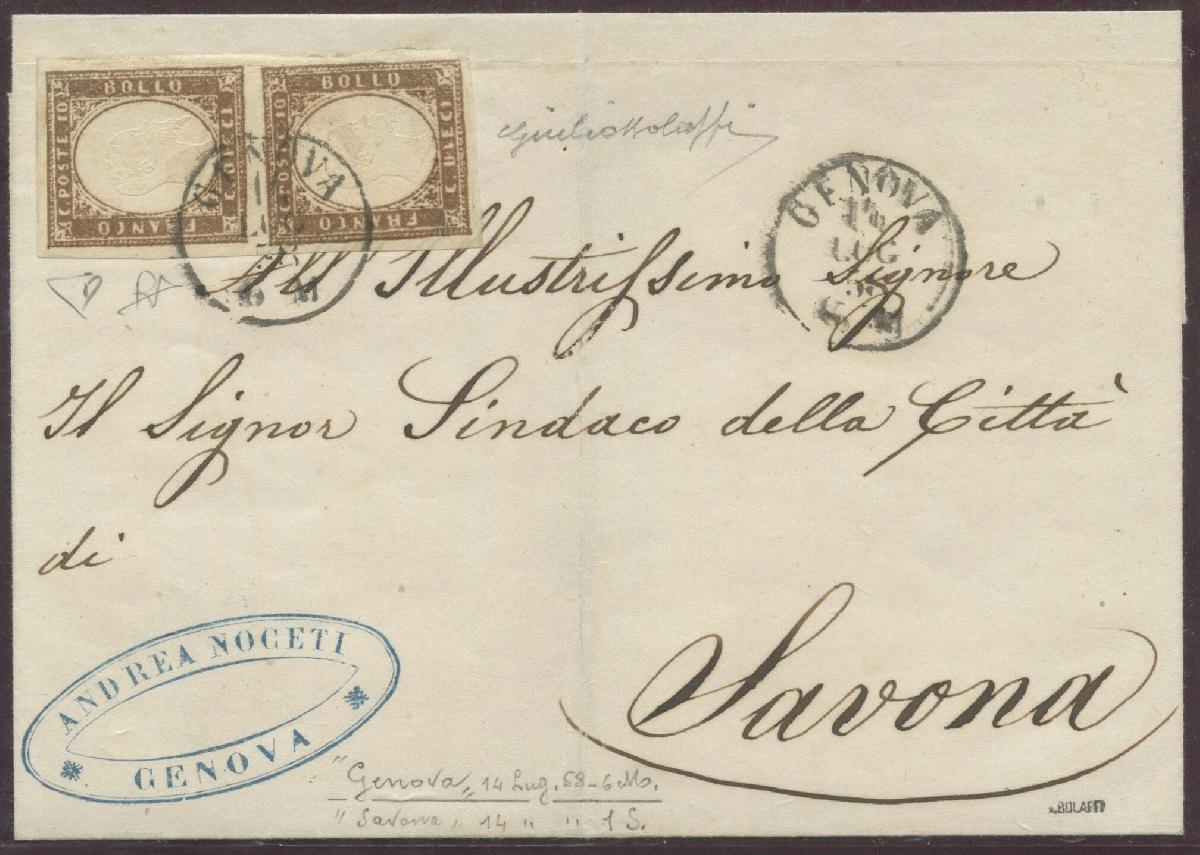 BOLLO
C. POSTE 10
C. DIECI
FRANCO
BOLLO
C. POSTE 10
C. DIECI
FRANCO
GENOVA
LUG
6 M
GiulioBolaffi
GENOVA
14
LUG
58
6 M
All'Illustrissimo Signore
Il Signor Sindaco della Città
di
Savona
ANDREA NOCETI
GENOVA
"Genova„ 14 Lug. 58 - 6 M.
"Savona„ 14 " " 1 S.
A. BOLAFFI